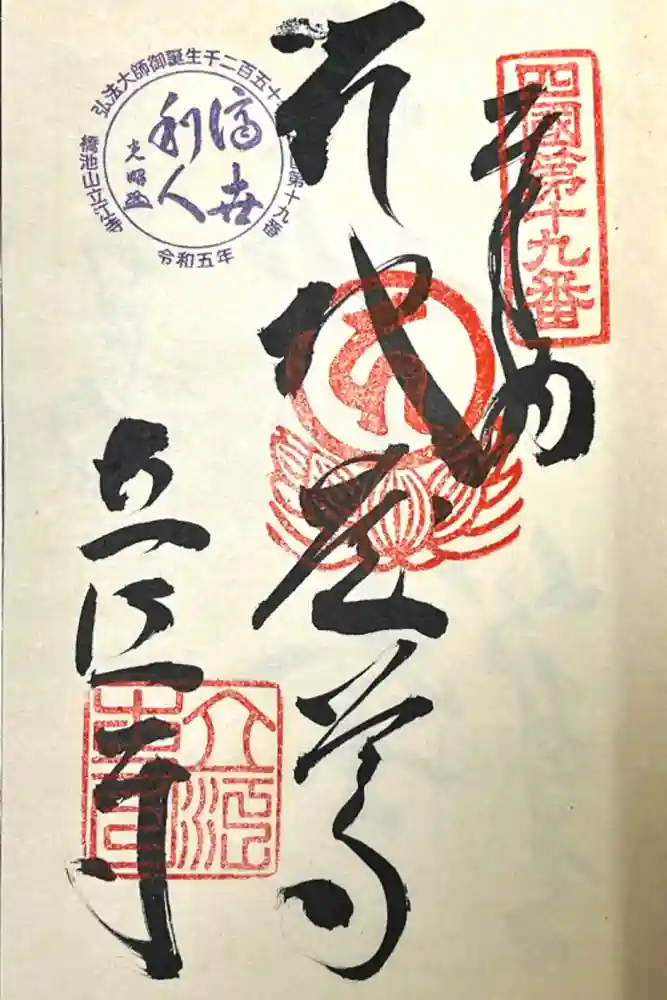 四國第十九番
奉納
地蔵尊
立江寺
弘法大師御誕生千二百五十
第十九番
済世
利人
橋池山立江寺
令和五年